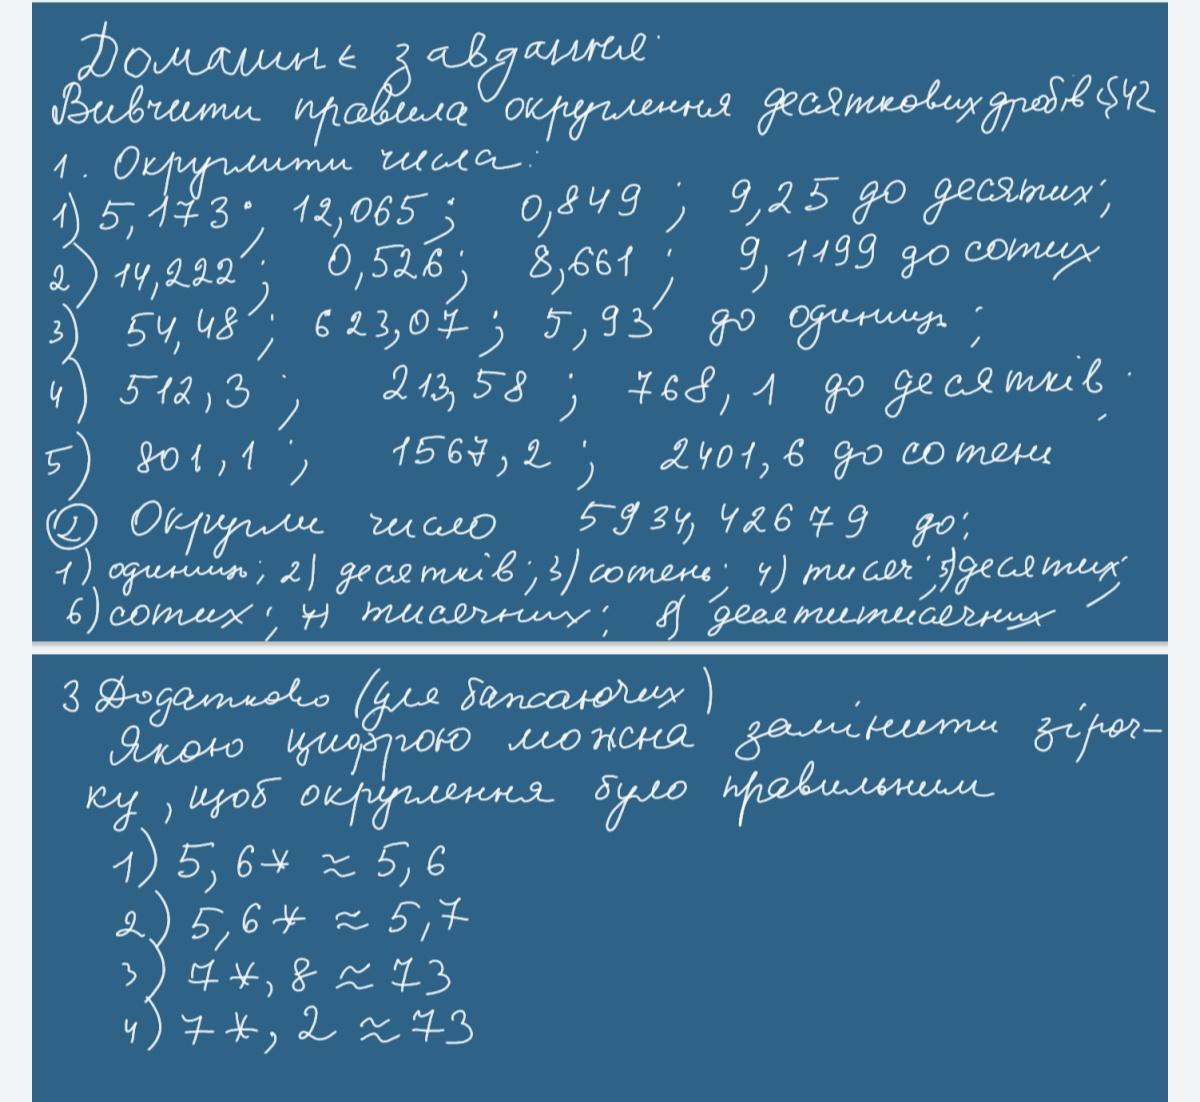 Домашнє завдання
Вивчити правила округлення десяткових дробів §42
1. Округлити числа:
1) 5,173; 12,065; 0,849; 9,25 до десятих;
2) 14,222; 0,526; 8,661; 9,1199 до сотих
3) 54,48; 623,07; 5,93 до одиниць;
4) 512,3; 213,58; 768,1 до десятків;
5) 801,1; 1567,2; 2401,6 до сотень
② Округли число 5934,42679 до:
1) одиниць; 2) десятків; 3) сотень; 4) тисяч; 5) десятих;
6) сотих; 7) тисячних; 8) десятитисячних
3 Додатково (для бажаючих)
Якою цифрою можна замінити зіроч-
ку, щоб округлення було правильним
1) 5,6* ≈ 5,6
2) 5,6* ≈ 5,7
3) 7*,8 ≈ 73
4) 7*,2 ≈ 73